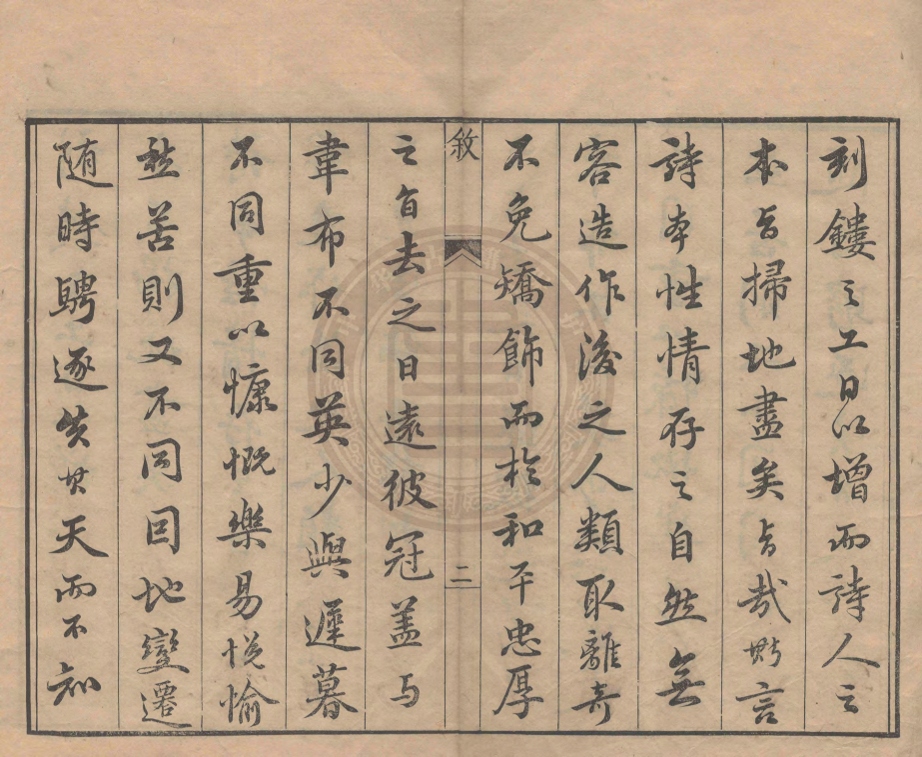 刻鏤之工日以增而詩人之
本旨掃地盡矣旨哉斯言
詩本性情存之自然無
容造作後之人類取離奇
不免矯飾而於和平忠厚
敘
二
之旨去之日遠彼冠蓋与
韋布不同英少與遲暮
不同重以慷慨樂易悦愉
愁苦則又不同因地變遷
随時騁逐失其天而不知